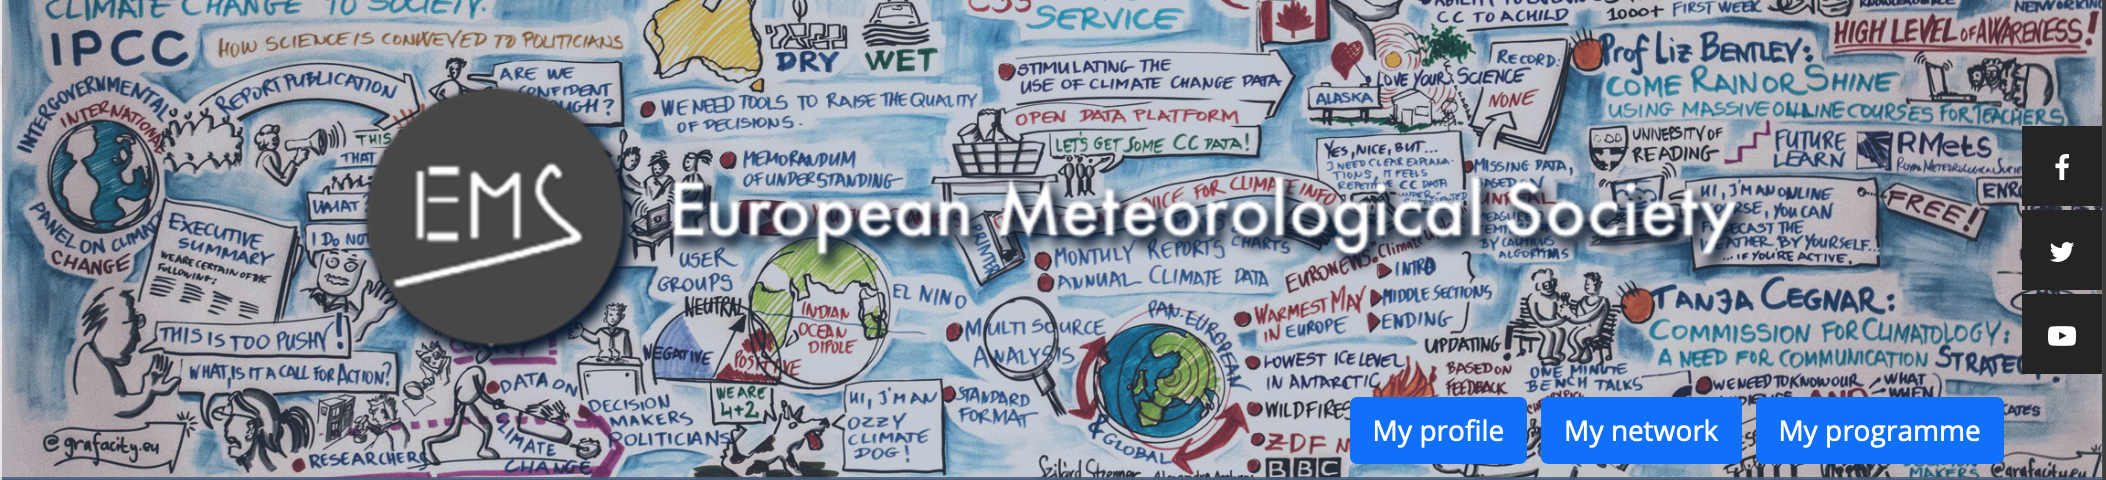 CLIMATE CHANGE TO SOCIETY.
IPCC
HOW SCIENCE IS CONVEYED TO POLITICIANS
REPORT PUBLICATION
ARE WE
CONFIDENT
INTERGOVERNMENTAL
INTERNATIONAL
PANEL ON CLIMATE
CHANGE
THIS
THAT
WHAT?
I DO NOT
EXECUTIVE
SUMMARY
WE ARE CERTAIN OF THE
FOLLOWING:
THIS IS TOO PUSHY!
WHAT, IS IT A CALL FOR ACTION?
@grafacity.eu
RESEARCHERS
DATA ON
CLIMATE
CHANGE
DECISION
MAKERS
POLITICIANS
DRY
WET
WE NEED TOOLS TO RAISE THE QUALITY
OF DECISIONS.
MEMORANDUM
OF UNDERSTANDING
EMS
European Meteorological Society
USER
GROUPS
NEUTRAL
NEGATIVE
POSITIVE
INDIAN
OCEAN
DIPOLE
EL NINO
WE ARE
4+2
HI, I'M AN
OZZY
CLIMATE
DOG!
C3S
SERVICE
STIMULATING THE
USE OF CLIMATE CHANGE DATA
OPEN DATA PLATFORM
LET'S GET SOME CC DATA!
PRINTER
MONTHLY REPORTS CHARTS
ANNUAL CLIMATE DATA
MULTI SOURCE
ANALYSIS
STANDARD
FORMAT
PAN-EUROPEAN
& GLOBAL
EURONEWS:
INTRO
WARMEST MAY
IN EUROPE
MIDDLE SECTIONS
ENDING
UPDATING!
LOWEST ICE LEVEL
IN ANTARCTIC
BASED ON
FEEDBACK
WILDFIRES
ZDF
BBC
CC TO A CHILD
1000+ FIRST WEEK
HIGH LEVEL OF AWARENESS!
LOVE YOUR SCIENCE
ALASKA
RECORD:
NONE
YES, NICE, BUT...
I NEED CLEAR EXPLANA-
TIONS, IT FEELS
MISSING DATA,
ALGORITHMS
Prof Liz BENTLEY:
COME RAIN OR SHINE
USING MASSIVE ONLINE COURSES FOR TEACHERS
UNIVERSITY OF
READING
FUTURE
LEARN
RMetS
HI, I'M AN ONLINE
COURSE, YOU CAN
FORECAST THE
WEATHER BY YOURSELF...
... IF YOU'RE ACTIVE.
FREE!
ONE MINUTE
BENCH TALKS
TANJA CEGNAR:
COMMISSION FOR CLIMATOLOGY:
A NEED FOR COMMUNICATION
WE NEED TO KNOW OUR
WHAT
WHEN
MAKERS
@grafacity.eu
My profile
My network
My programme